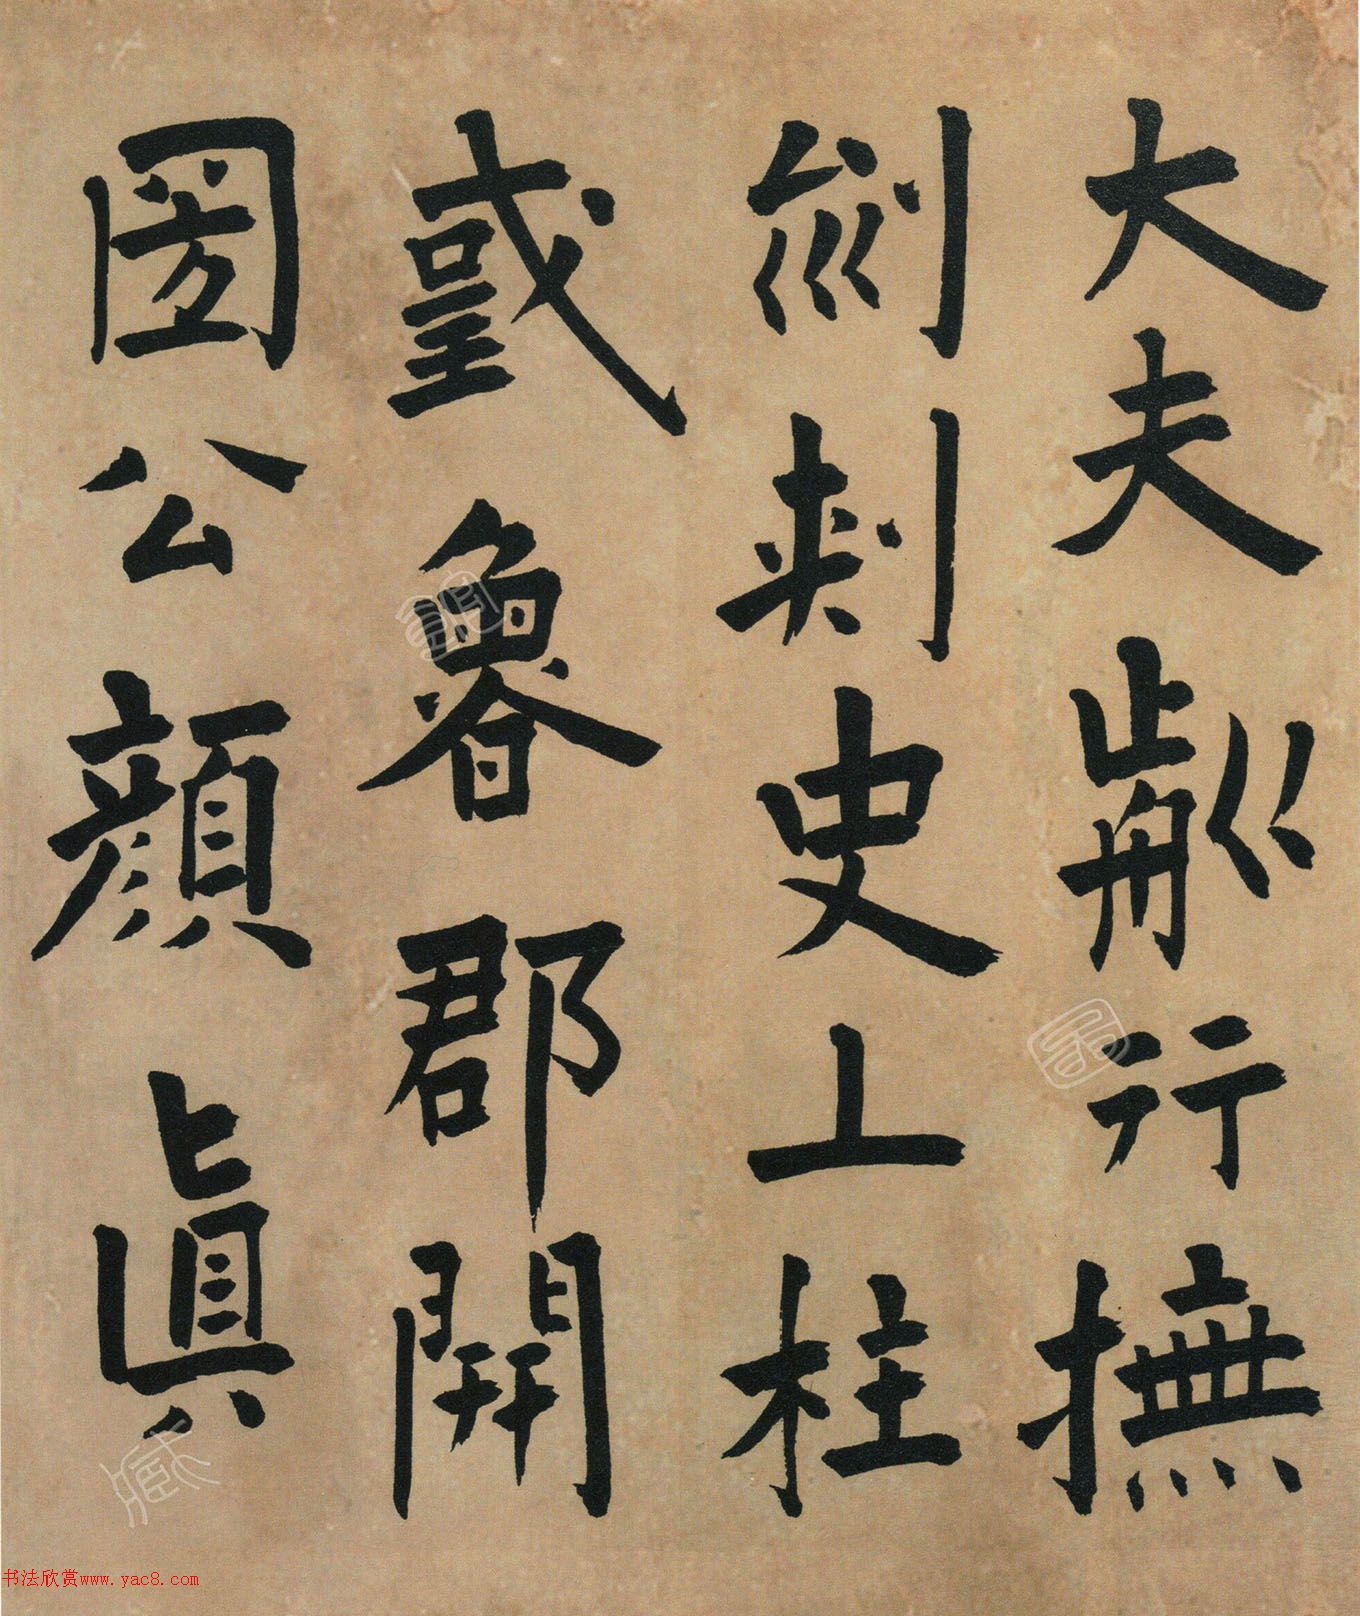 大夫前行撫
州刺史上柱
國魯郡開
國公顏眞
书法欣赏www.yac8.com